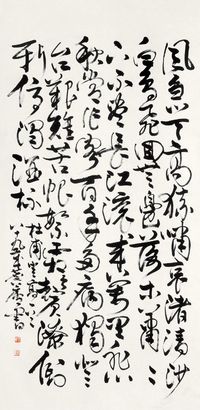 風急天高猿嘯哀渚清沙
白鳥飛回無邊落木蕭〻
下不盡長江滾〻來萬里悲
秋常作客百年多病獨登
台艱難苦恨繁霜鬢潦倒
新停濁酒杯
杜甫登高